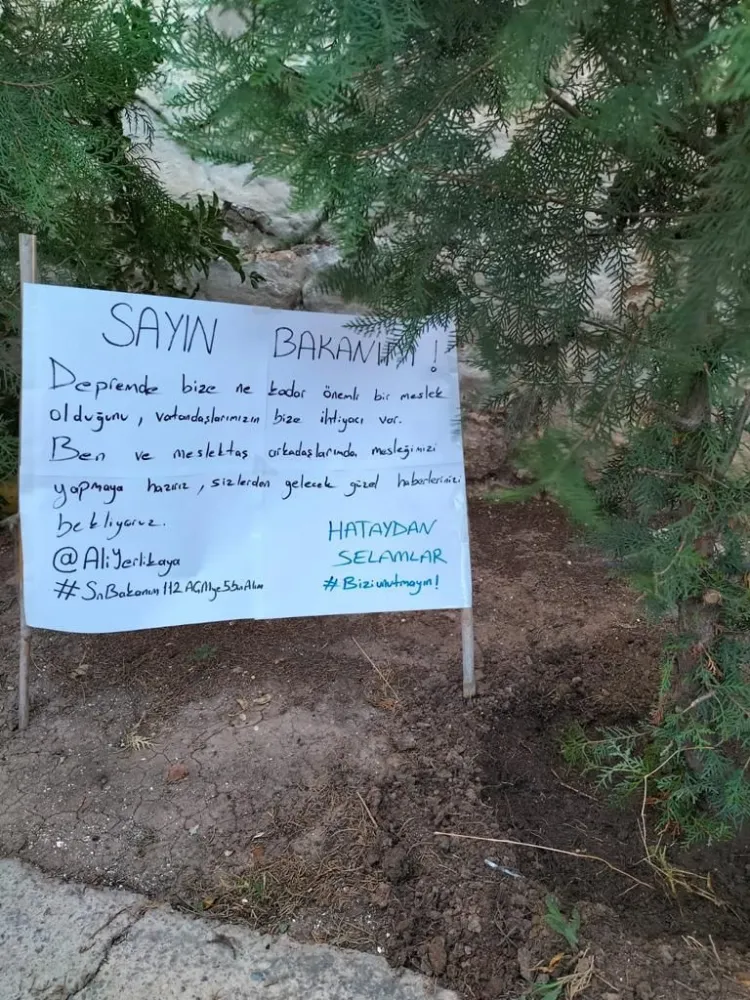 SAYIN BAKANIM !
Depremde bize ne kadar önemli bir meslek
olduğunu, vatandaşlarımızın bize ihtiyacı var.
Ben ve meslektaş arkadaşlarımda mesleğimizi
yapmaya hazırız, sizlerden gelecek güzel haberlerinizi
bekliyoruz.
@AliYerlikaya
HATAYDAN
SELAMLAR
#Biziunutmayın!